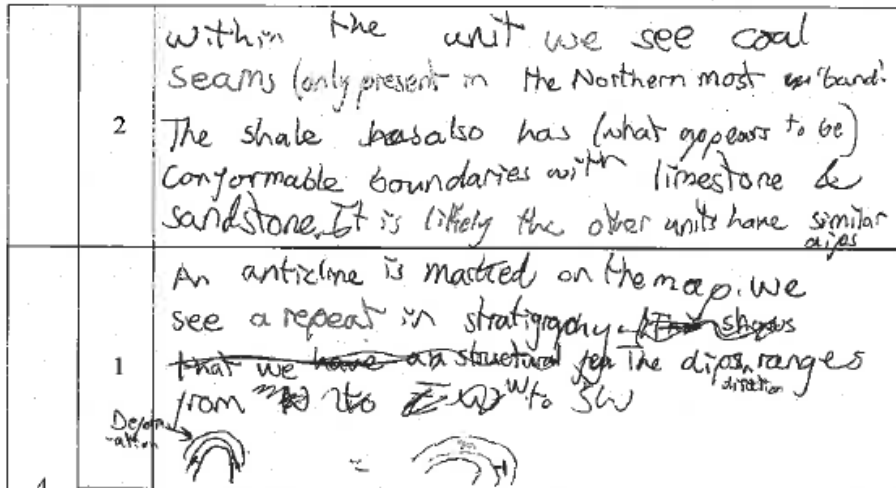 within the unit we see coal
seams (only present in the Northern most 'band'.
2
The shale also has (what appears to be)
conformable boundaries with limestone &
sandstone. It is likely the other units have similar
dips
An anticline is marked on the map. We
see a repeat in stratigraphy. shows
1
that we have an structural The dips ranges
direction
from to W to SW
Deform
-ation
4